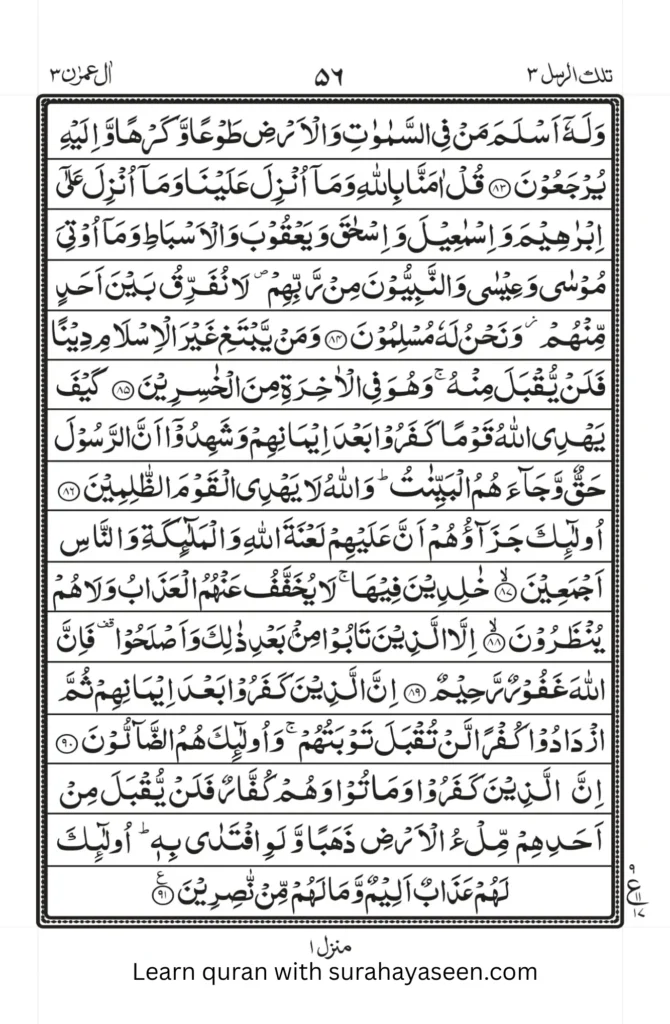 تلك الرسل ٣ ٥٦ اٰل عمرٰن ٣
وَلَهٗۤ اَسْلَمَ مَنْ فِی السَّمٰوٰتِ وَالْاَرْضِ طَوْعًا وَّكَرْهًا وَّاِلَیْهِ
یُرْجَعُوْنَ ﴿۸۳﴾ قُلْ اٰمَنَّا بِاللّٰهِ وَمَاۤ اُنْزِلَ عَلَیْنَا وَمَاۤ اُنْزِلَ عَلٰۤی
اِبْرٰهِیْمَ وَاِسْمٰعِیْلَ وَاِسْحٰقَ وَیَعْقُوْبَ وَالْاَسْبَاطِ وَمَاۤ اُوْتِیَ
مُوْسٰی وَعِیْسٰی وَالنَّبِیُّوْنَ مِنْ رَّبِّهِمْ ۪ لَا نُفَرِّقُ بَیْنَ اَحَدٍ
مِّنْهُمْ ؗ وَنَحْنُ لَهٗ مُسْلِمُوْنَ ﴿۸۴﴾ وَمَنْ یَّبْتَغِ غَیْرَ الْاِسْلَامِ دِیْنًا
فَلَنْ یُّقْبَلَ مِنْهُ ۚ وَهُوَ فِی الْاٰخِرَةِ مِنَ الْخٰسِرِیْنَ ﴿۸۵﴾ كَیْفَ
یَهْدِی اللّٰهُ قَوْمًا كَفَرُوْا بَعْدَ اِیْمَانِهِمْ وَشَهِدُوْۤا اَنَّ الرَّسُوْلَ
حَقٌّ وَّجَآءَهُمُ الْبَیِّنٰتُ ؕ وَاللّٰهُ لَا یَهْدِی الْقَوْمَ الظّٰلِمِیْنَ ﴿۸۶﴾
اُولٰٓئِكَ جَزَآؤُهُمْ اَنَّ عَلَیْهِمْ لَعْنَةَ اللّٰهِ وَالْمَلٰٓئِكَةِ وَالنَّاسِ
اَجْمَعِیْنَ ۙ﴿۸۷﴾ خٰلِدِیْنَ فِیْهَا ۚ لَا یُخَفَّفُ عَنْهُمُ الْعَذَابُ وَلَا هُمْ
یُنْظَرُوْنَ ۙ﴿۸۸﴾ اِلَّا الَّذِیْنَ تَابُوْا مِنْۢ بَعْدِ ذٰلِكَ وَاَصْلَحُوْا ۫ فَاِنَّ
اللّٰهَ غَفُوْرٌ رَّحِیْمٌ ﴿۸۹﴾ اِنَّ الَّذِیْنَ كَفَرُوْا بَعْدَ اِیْمَانِهِمْ ثُمَّ
ازْدَادُوْا كُفْرًا لَّنْ تُقْبَلَ تَوْبَتُهُمْ ۚ وَاُولٰٓئِكَ هُمُ الضَّآلُّوْنَ ﴿۹۰﴾
اِنَّ الَّذِیْنَ كَفَرُوْا وَمَاتُوْا وَهُمْ كُفَّارٌ فَلَنْ یُّقْبَلَ مِنْ
اَحَدِهِمْ مِّلْءُ الْاَرْضِ ذَهَبًا وَّلَوِ افْتَدٰی بِهٖ ؕ اُولٰٓئِكَ
لَهُمْ عَذَابٌ اَلِیْمٌ وَّمَا لَهُمْ مِّنْ نّٰصِرِیْنَ ﴿۹۱﴾ ع
۹
ع ۱۱
۱۷
منزل ١
Learn quran with surahayaseen.com